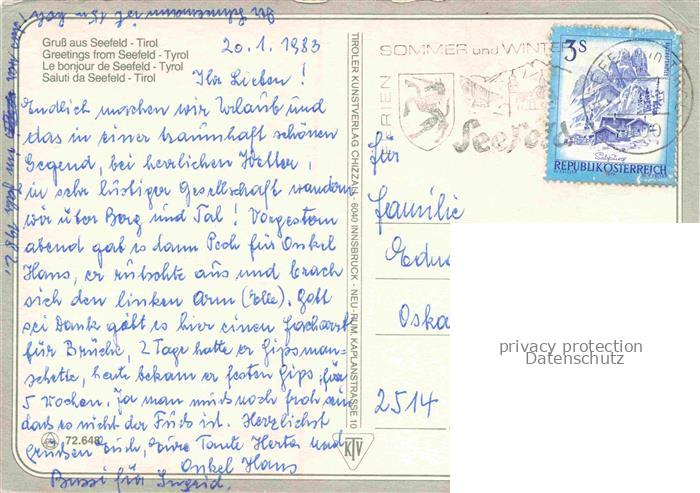 Gruß aus Seefeld - Tirol
Greetings from Seefeld - Tyrol
Le bonjour de Seefeld - Tyrol
Saluti da Seefeld - Tirol
20.1.1983
Ihr Lieben!
Endlich machen wir Urlaub und
das in einer traumhaft schönen
Gegend, bei herrlichen Wetter,
in sehr lustiger Gesellschaft wandern
wir über Berg und Tal! Vorgestern
abend gab es dann Pech für Onkel
Hans, er rutschte aus und brach
sich den linken Arm (Elle). Gott
sei Dank gibt es hier einen Facharzt
für Brüche, 2 Tage hatte er Gipsman-
schette, heute bekam er festen Gips, für
5 Wochen. Ja man muß noch froh sein
daß es nicht der Fuß ist. Herzlichst
grüßen Euch, Eure Tante Herta und
Onkel Hans
Bussi für Ingrid.
72.648
TIROLER KUNSTVERLAG CHIZZALI - 6040 INNSBRUCK - NEU-RUM, KAPLANSTRASSE 10
KTV
FERIEN
SOMMER und WINTER
Seefeld
3 S
REPUBLIK ÖSTERREICH
Für
Familie
Edu
Oska
2514
privacy protection
Datenschutz